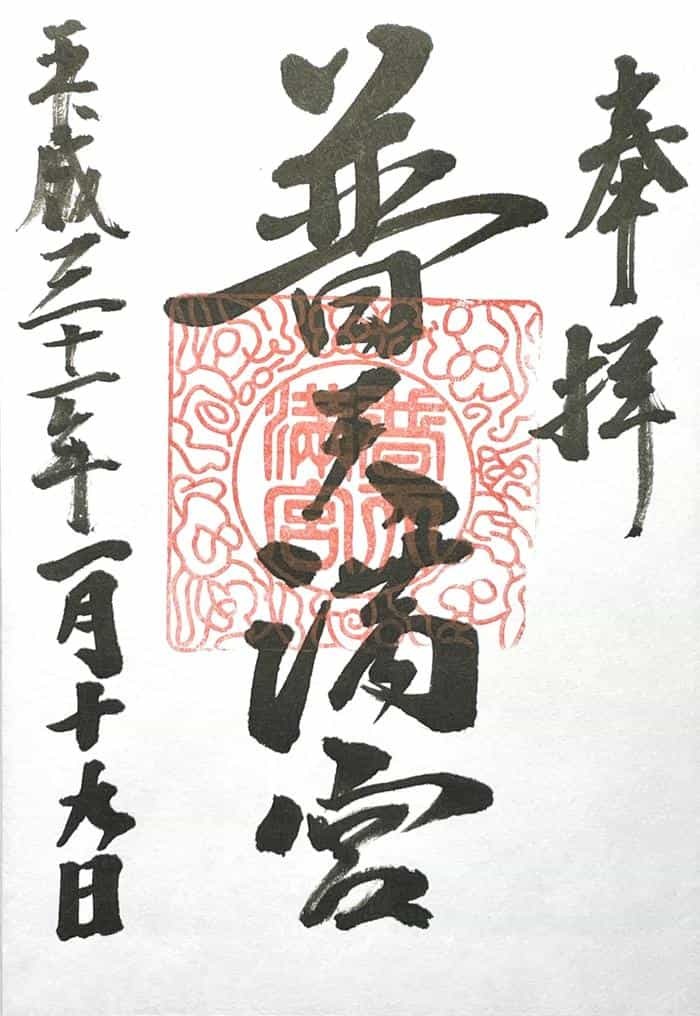 奉拝
普天満宮
普天
満宮
平成三十一年一月十九日